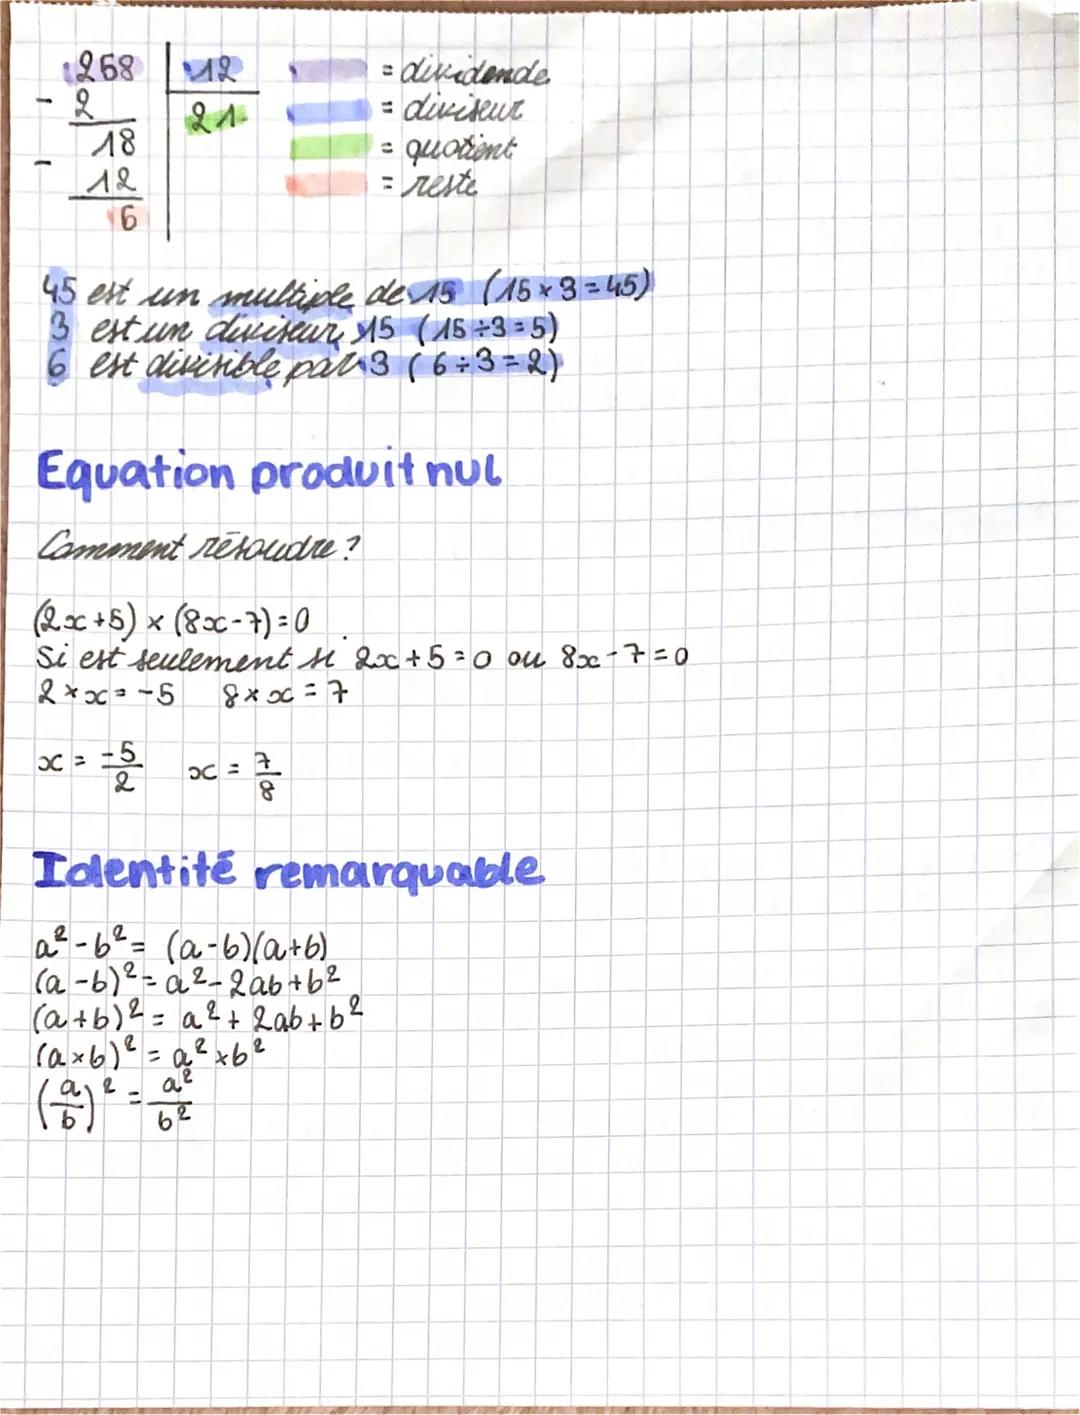 258 12 = dividende
- 2 21 = diviseur
18 = quotient
- 12 = reste
6
45 est un multiple de 15 (15 × 3 = 45)
3 est un diviseur 15 (15 ÷ 3 = 5)
6 est divisible par 3 (6 ÷ 3 = 2)
Equation produit nul
Comment résoudre ?
(2x+5) × (8x-7) = 0
Si est seulement si 2x + 5 = 0 ou 8x - 7 = 0
2 × x = -5 8 × x = 7
x = -5/2 x = 7/8
Identité remarquable
a² - b² = (a-b)(a+b)
(a-b)² = a² - 2ab + b²
(a+b)² = a² + 2ab + b²
(a×b)² = a² × b²
(a/b)² = a²/b²